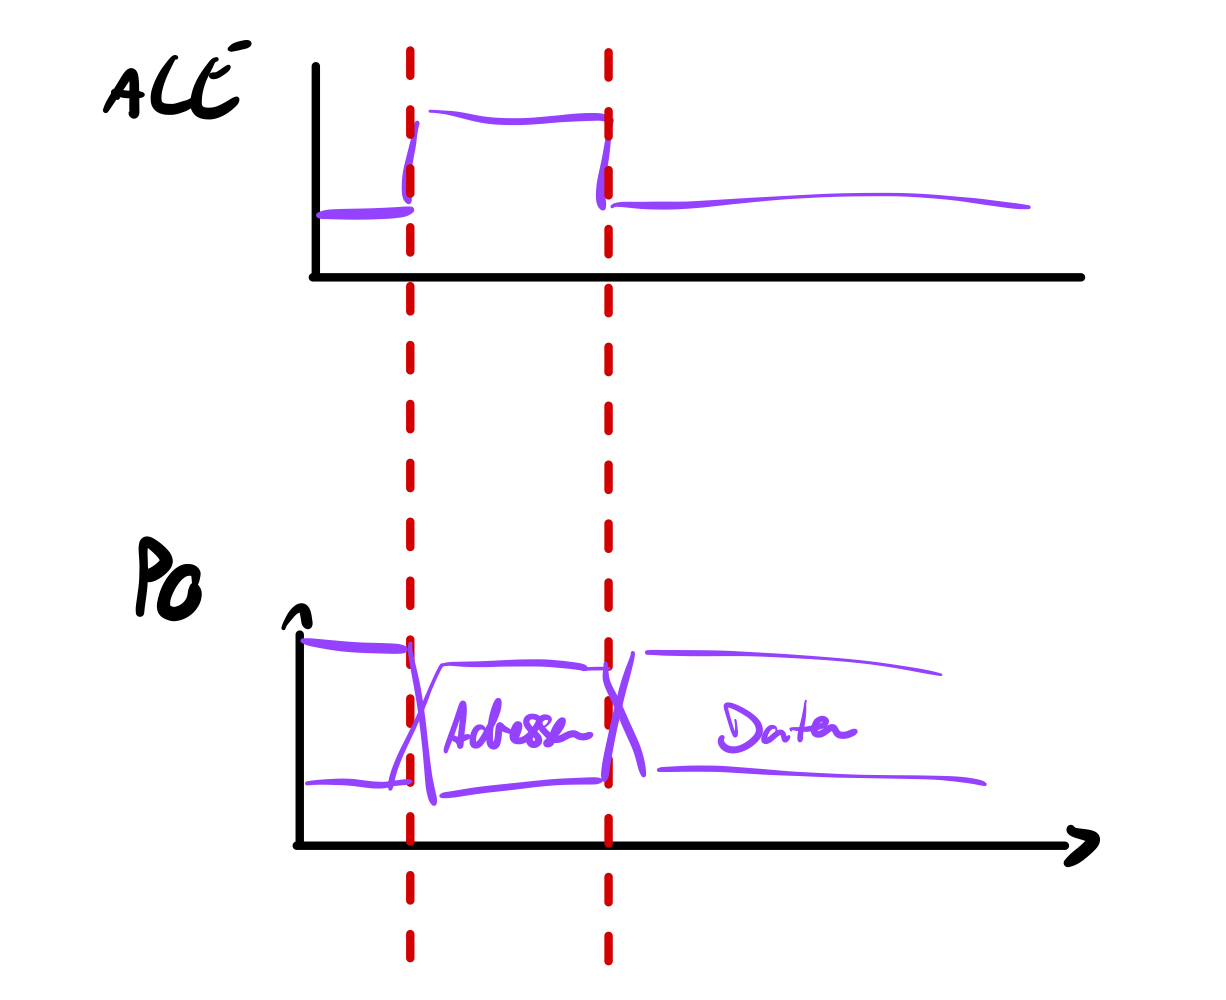 ALE
P0
Adressen
Daten